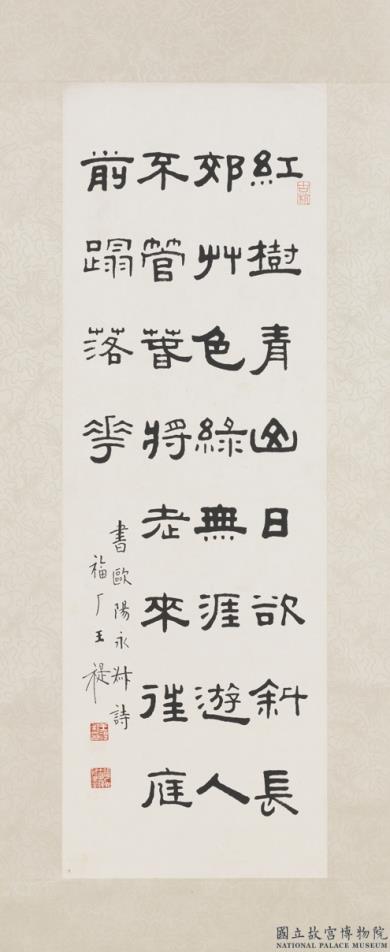 紅樹青山日欲斜長
郊艸色綠無涯遊人
不管春將老來往庭
前蹋落花
書歐陽永叔詩
福厂王禔
國立故宮博物院
NATIONAL PALACE MUSEUM